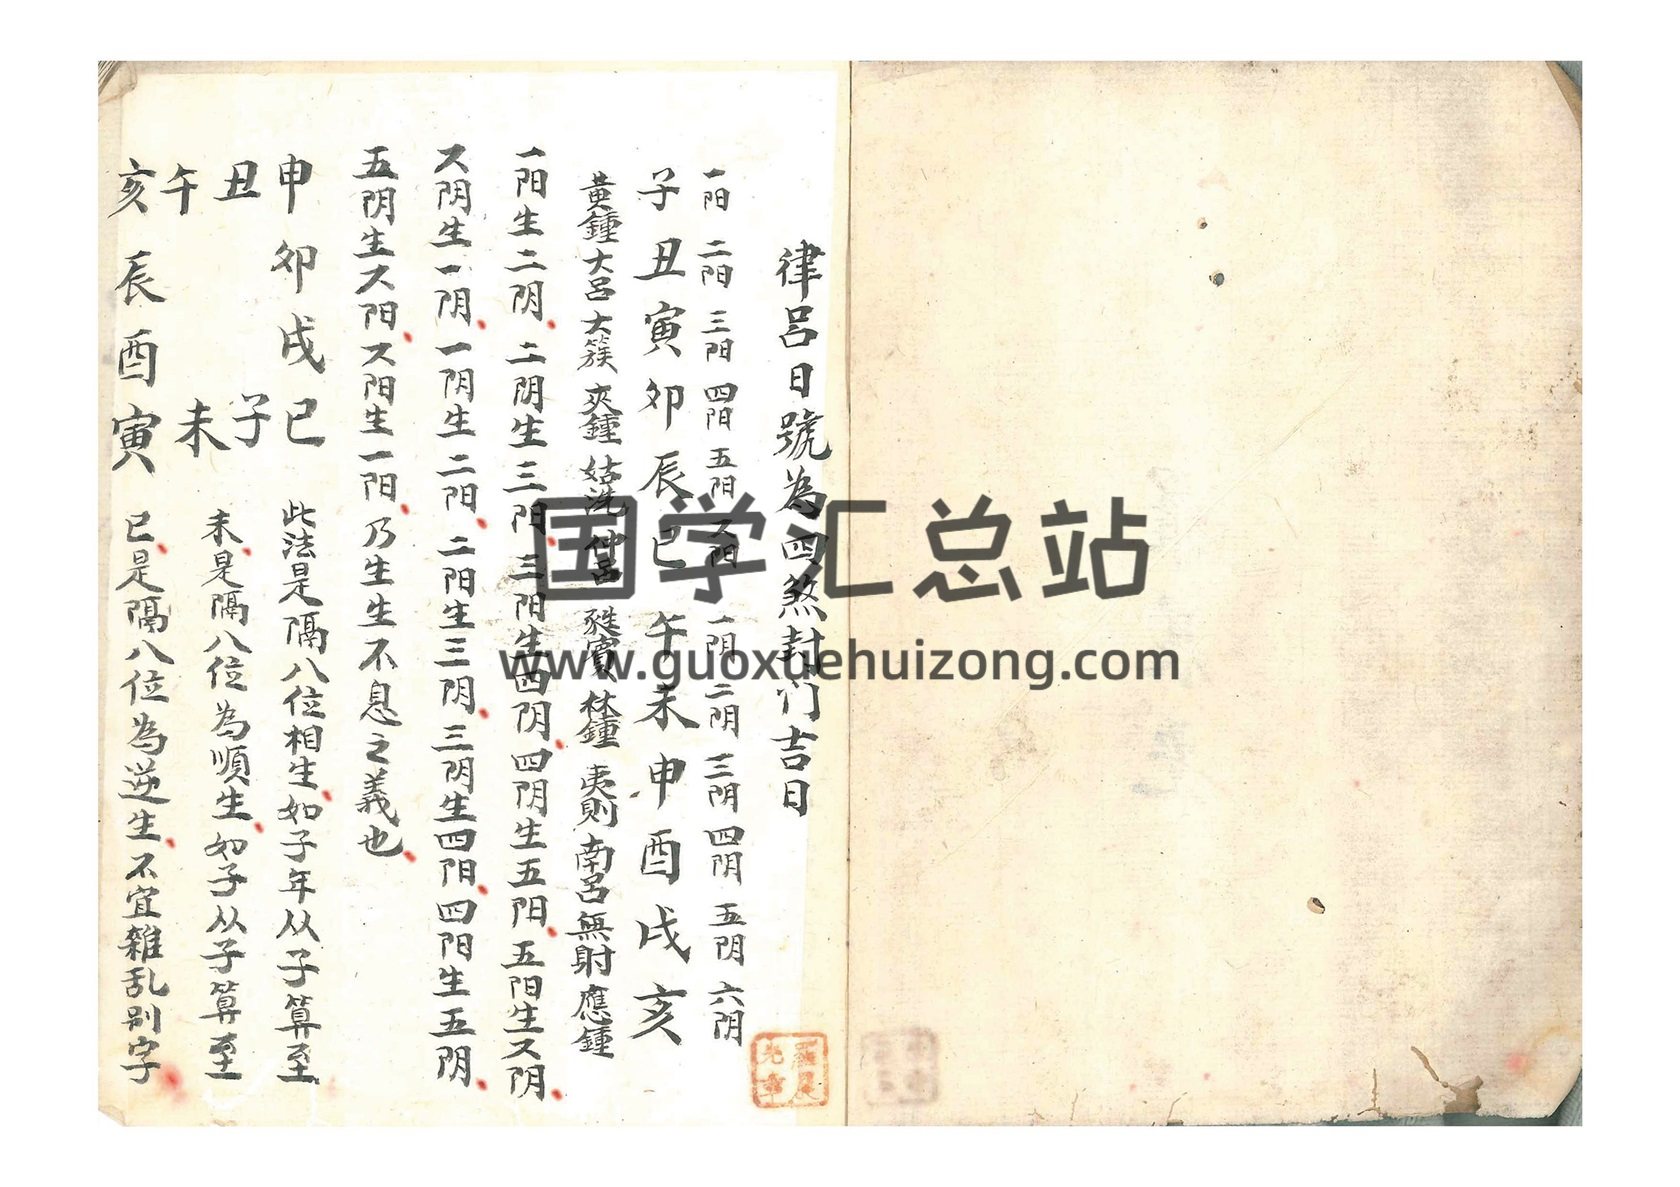 律呂日號為四煞封门吉日
一阳 二阳 三阳 四阳 五阳 六阳 一阴 二阴 三阴 四阴 五阴 六阴
子丑寅卯辰巳午未申酉戌亥
黃鍾 大呂 大簇 夾鍾 姑洗 仲呂 蕤賓 林鍾 夷則 南呂 無射 應鍾
一阳生二阴 二阴生三阳 三阳生四阴 四阴生五阳 五阳生六阴
六阴生一阴 一阴生二阳 二阳生三阴 三阴生四阳 四阳生五阴
五阴生六阳 六阳生一阳 乃生生不息之義也
申卯戌巳 此法是隔八位相生 如子年从子算至
丑子
午未 未是隔八位為順生 如子从子算至
亥辰酉寅 巳是隔八位為逆生 不宜雜乱别字
国学汇总站
www.guoxuehuizong.com